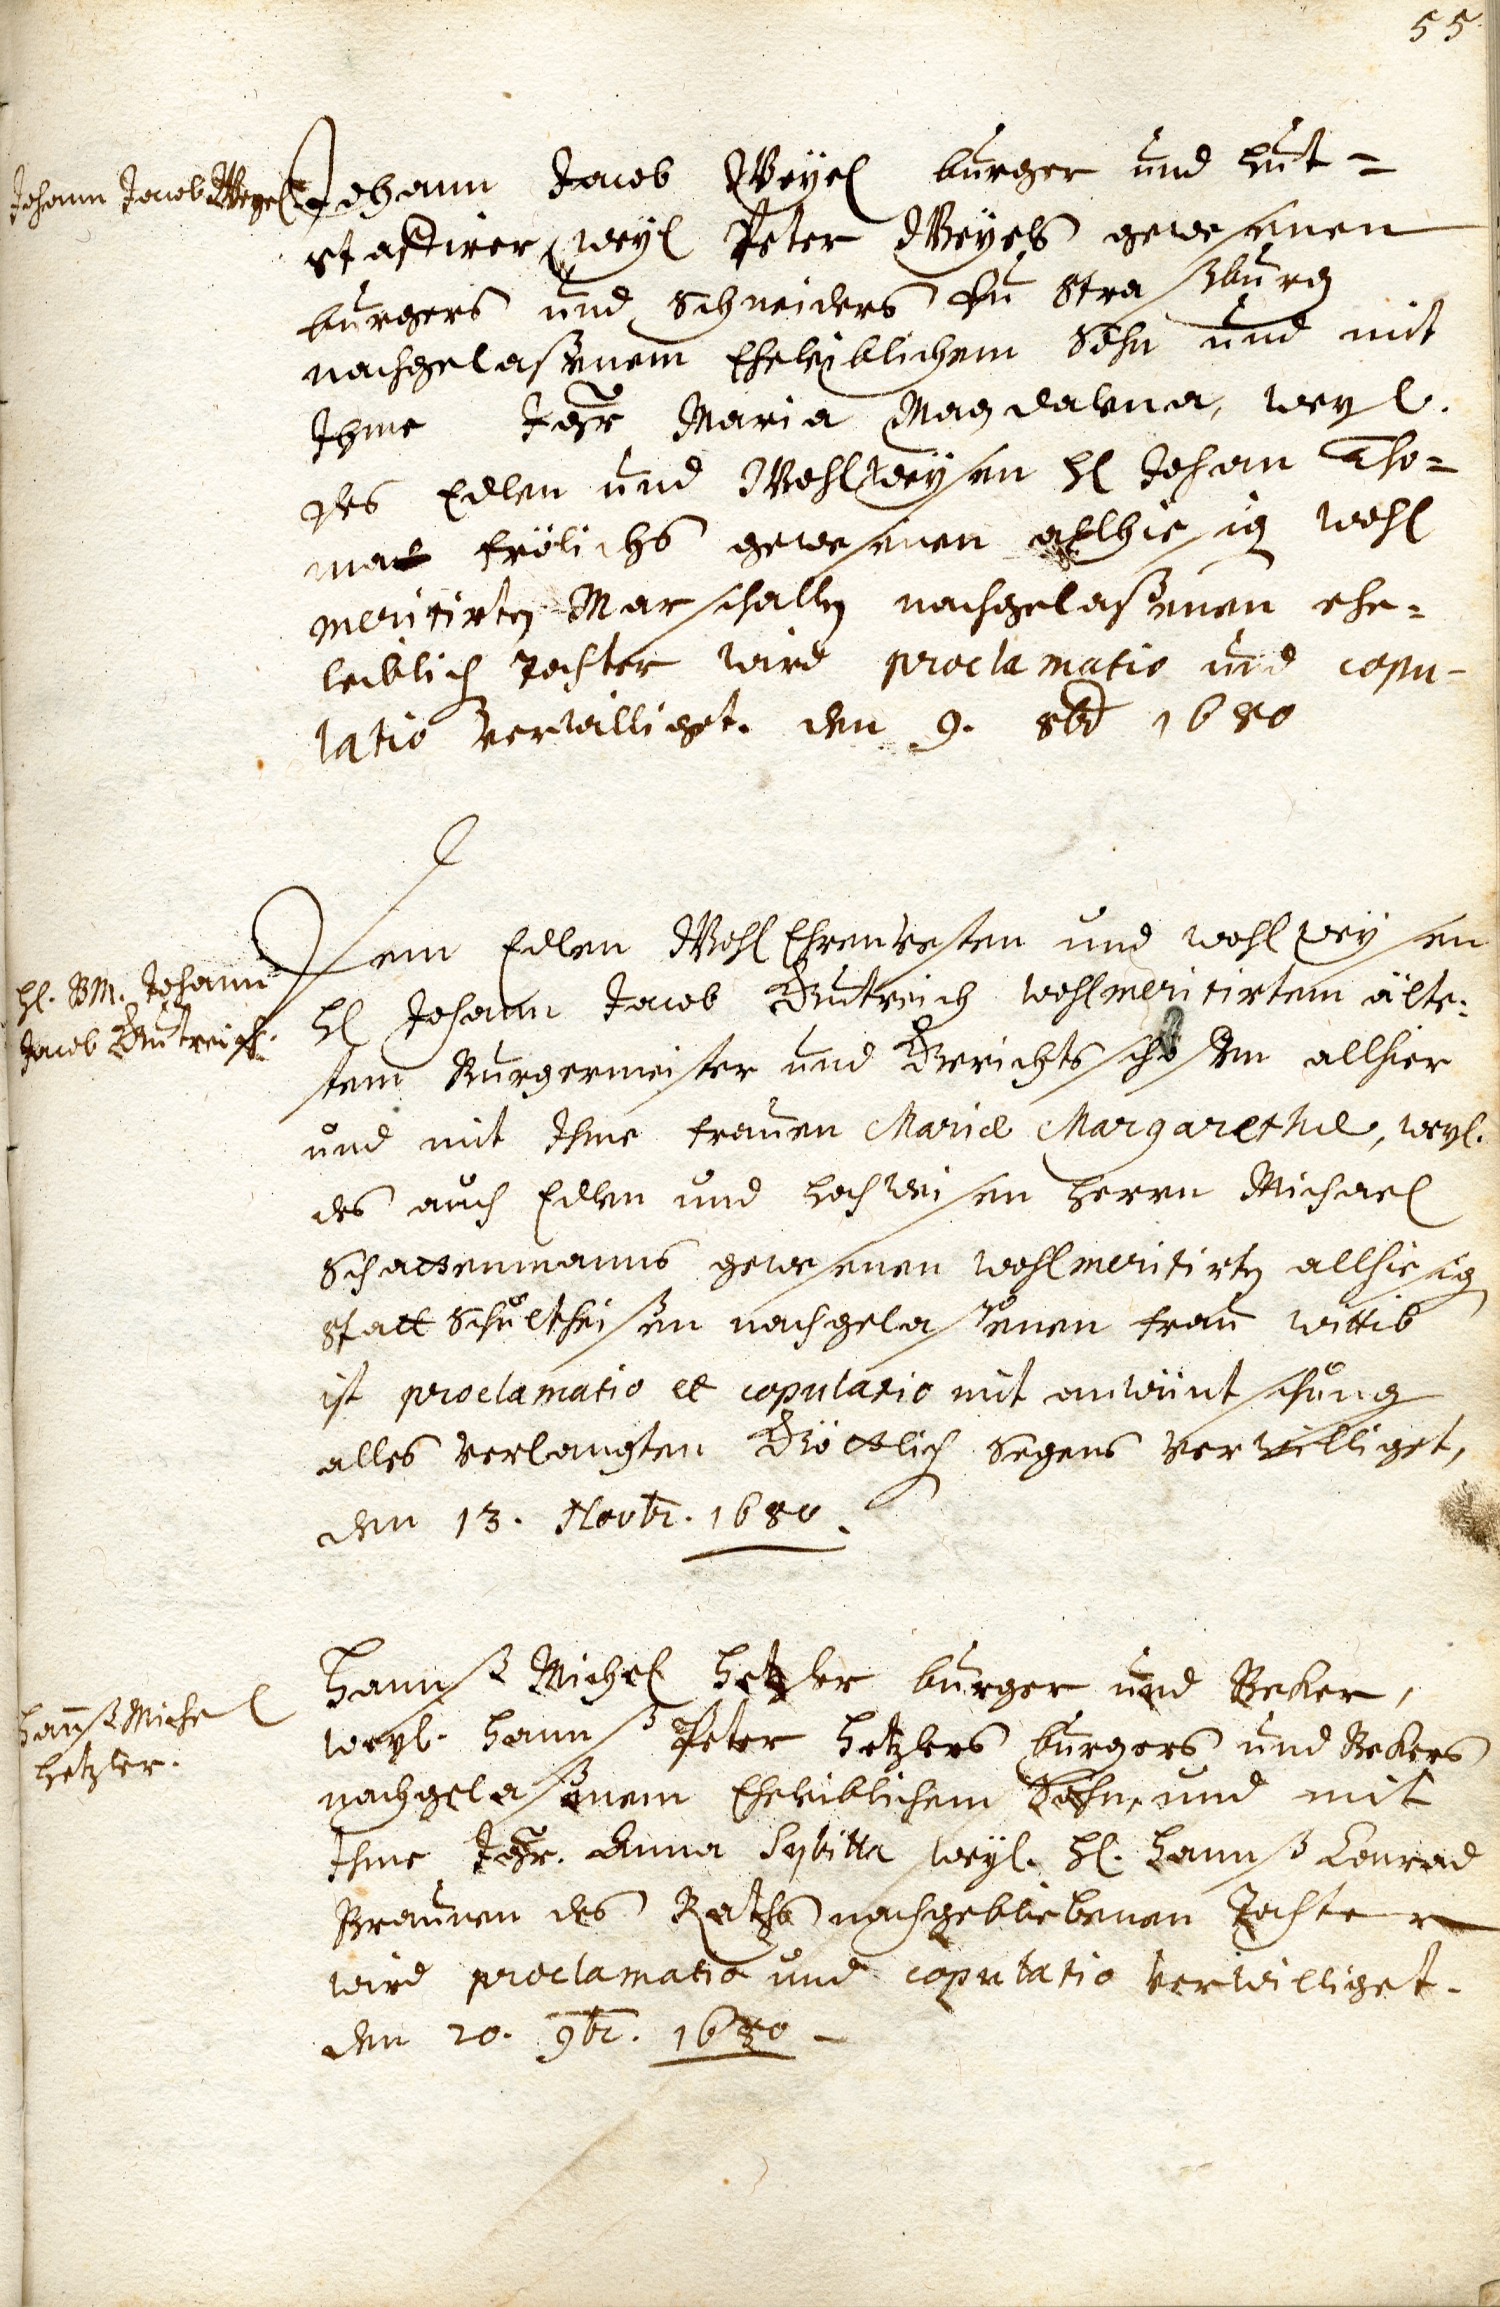 55
Johann Jacob Weyel
Johann Jacob Weyel burger und hut=
staffirer, weyl Peter Weyels gewesenen
burgers und Schneiders zu Straßburg
nachgelaßenem Eheleiblichem Sohn und mit
Ihme Jgfr Maria Magdalena, weyl.
des Edlen und Wohlweysen hl Johan Tho=
mae Frölichs gewesenen allhiesig wohl
meritirten Marschallen nachgelaßenen ehe=
leiblich Tochter wird proclamatio und copu-
latio verwilliget. den 9. 8br 1680
Hl. BM. Johann
Jacob Gutreich.
Dem Edlen Wohl Ehrenvesten und wohlweysen
Hl Johann Jacob Gutreich wohlmeritirtem älte=
stem Burgermeister und Gerichtsschöffen allhier
und mit Ihme Frauen Mariae Margarethae, weyl.
des auch Edlen und hochweisen Herrn Michael
Schattenmanns gewesenen wohlmeritirten allhiesig
Statt Schultheißen nachgelaßenen Frau wittib
ist proclamatio et copulatio mit anwüntschung
alles verlangten Göttlich Segens verwilliget,
den 13. Novbr. 1680.
Hannß Michel
Hetzler.
Hannß Michel Hetzler burger und Beker,
weyl. Hannß Peter Hetzlers burgers und Bekers
nachgelaßenem Eheleiblichem Sohn, und mit
Ihme Jgfr. Anna Sybilla weyl. Hl. Hannß Conrad
Braunen des Raths nachgebliebenen Tochter
wird proclamatio und copulatio verwilliget.
den 20. 9br. 1680 -